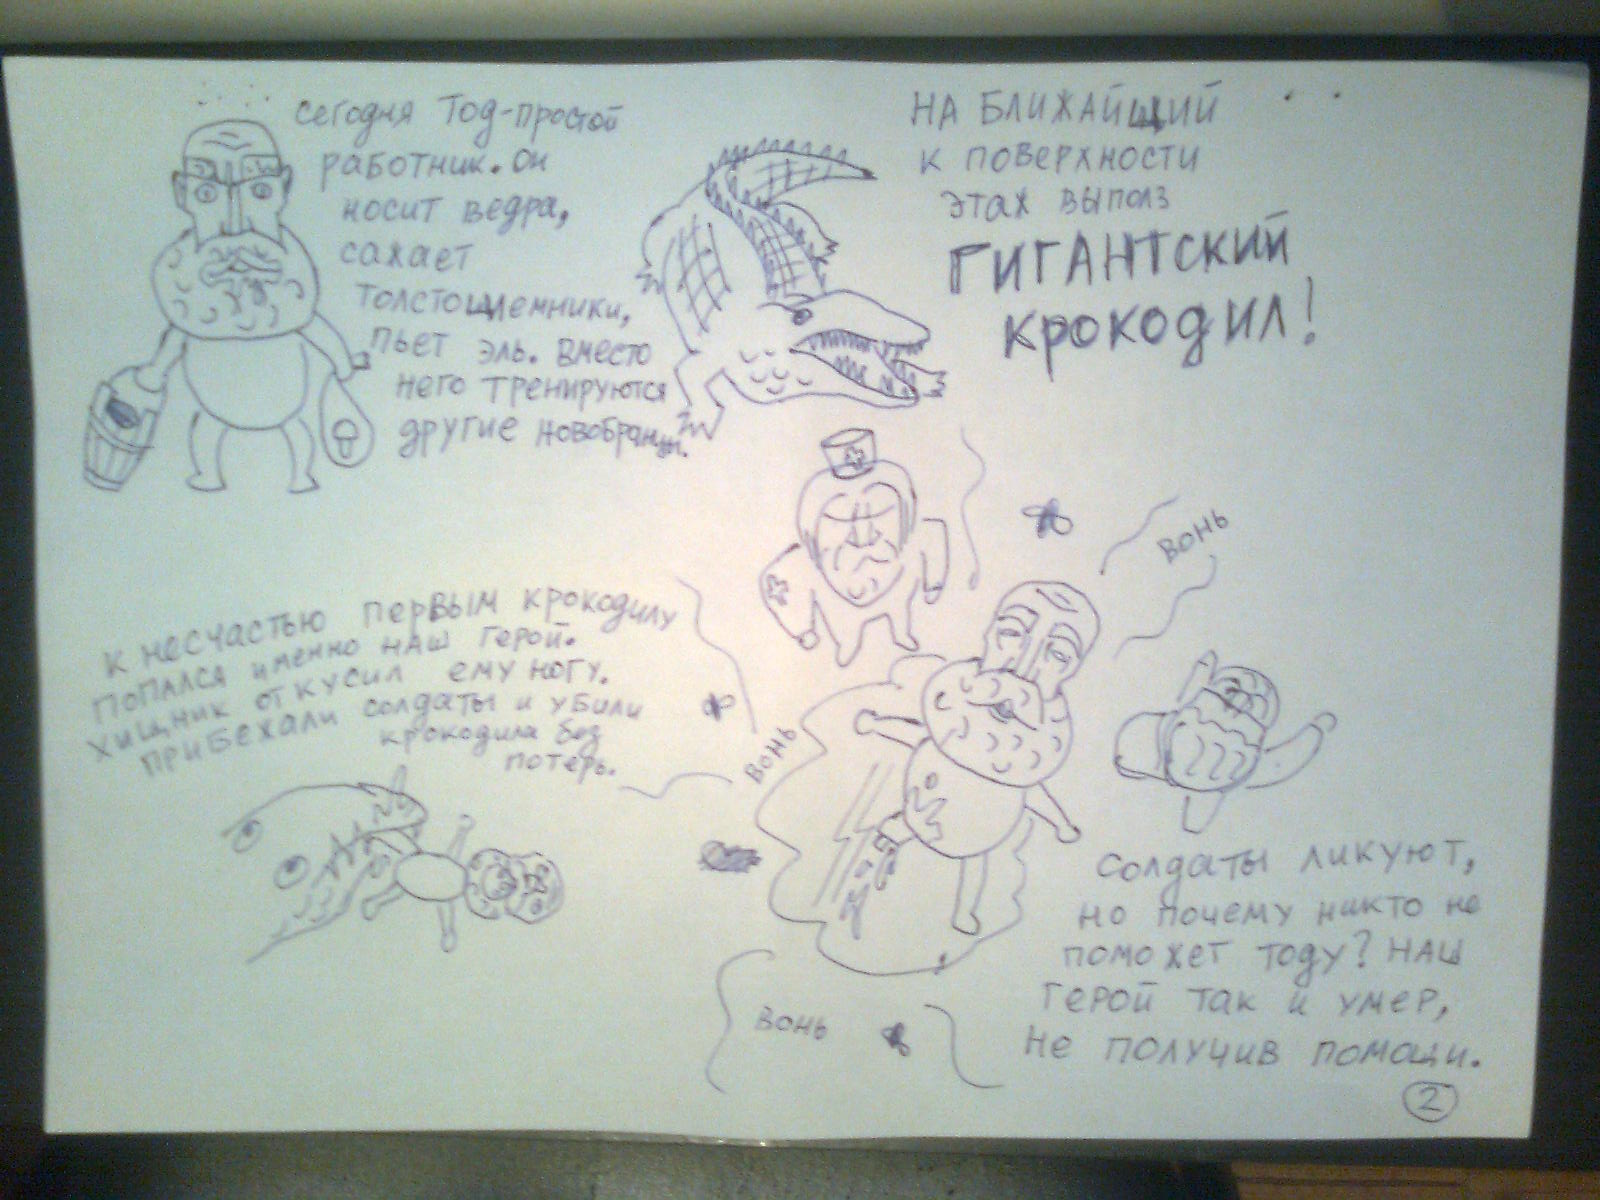 сегодня Тод-простой
работник. он
носит ведра,
сажает
толстошлемники,
пьет эль. вместо
него тренируются
другие новобранцы.
НА БЛИЖАЙШИЙ
К ПОВЕРХНОСТИ
ЭТАЖ ВЫПОЛЗ
ГИГАНТСКИЙ
КРОКОДИЛ!
К НЕСЧАСТЬЮ ПЕРВЫМ КРОКОДИЛУ
ПОПАЛСЯ ИМЕННО НАШ ГЕРОЙ.
ХИЩНИК ОТКУСИЛ ЕМУ НОГУ.
ПРИБЕЖАЛИ СОЛДАТЫ И УБИЛИ
КРОКОДИЛА БЕЗ
ПОТЕРЬ.
ВОНЬ
ВОНЬ
ВОНЬ
СОЛДАТЫ ЛИКУЮТ,
НО ПОЧЕМУ НИКТО НЕ
ПОМОЖЕТ ТОДУ? НАШ
ГЕРОЙ ТАК И УМЕР,
НЕ ПОЛУЧИВ ПОМОЩИ.
2